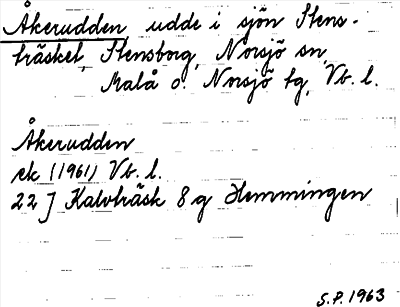 Åkerudden udde i sjön Stens-
träsket, Stensborg, Norsjö sn,
Malå o. Norsjö tg, Vb. l.
Åkerudden
ek (1961) Vb. l.
22 J Kalvträsk 8 g Hemmingen
S.P. 1963